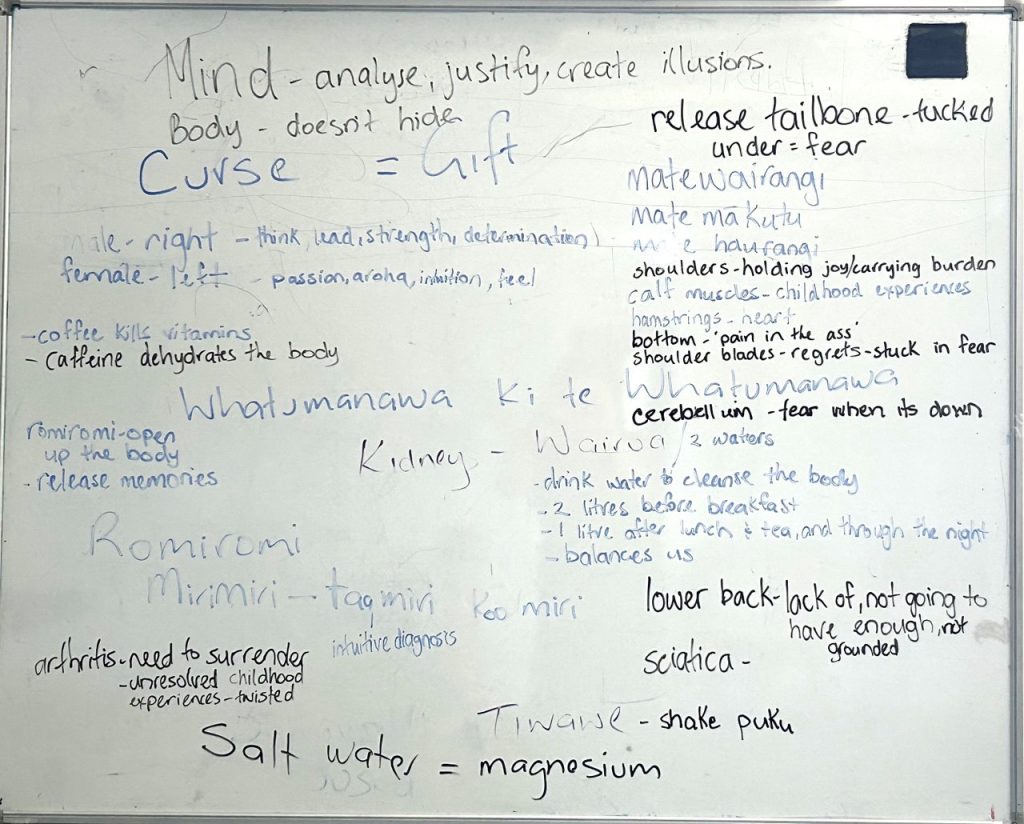 Mind - analyse, justify, create illusions.
Body - doesn't hide
Curse = Gift
release tailbone - tucked
under = fear
matewairangi
mate mākutu
haurangi
male - right - think, lead, strength, determination)
female - left - passion, aroha, intuition, feel
shoulders - holding joy/carrying burden
calf muscles - childhood experiences
hamstrings - heart
bottom - 'pain in the ass'
shoulder blades - regrets - stuck in fear
- coffee kills vitamins
- caffeine dehydrates the body
Whatumanawa ki te Whatumanawa
cerebellum - fear when its down
romiromi - open
up the body
- release memories
Kidney - Wairua / 2 waters
- drink water to cleanse the body
- 2 litres before breakfast
- 1 litre after lunch & tea, and through the night
- balances us
Romiromi
Mirimiri -
intuitive diagnosis
lower back - lack of, not going to
have enough, not
grounded
sciatica -
arthritis - need to surrender
- unresolved childhood
experiences - twisted
- shake puku
Salt water = magnesium